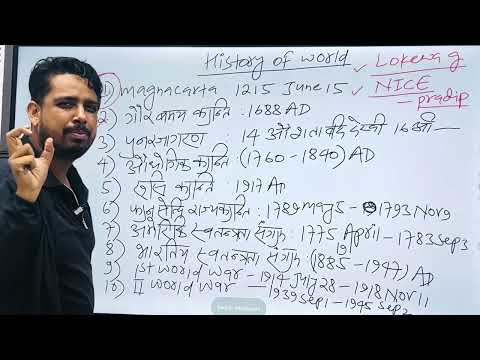 History of world
Lokewa g
NICE
pradip
1) magnacarta 1215 June 15
2) गौरवमय क्रान्ति : 1688 AD
3) पुनरजागरण : 14 औ शताब्दि देखी 16 औ
4) औधोगिक क्रान्ति (1760-1840) AD
5) रुसि क्रान्ति : 1917 AD
6) राज्यक्रान्ति : 1789 may 5 - 1793 Nov 9
7) अमेरिकि स्वतन्त्रता संग्राम : 1775 April - 1783 Sep 3
8) भारतिय स्वतन्त्रता संग्राम : (1885-1947) AD
9) 1st World War - 1914 July 28 - 1918 Nov 11
10) II World War - 1939 Sep 1 - 1945 Sep 2